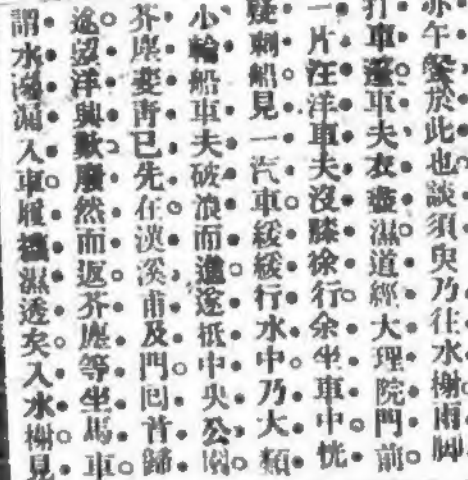 亦午餐於此也談須臾乃往水榭雨脚
打車篷車夫衣盡濕道經大理院門前
一片汪洋車夫沒膝徐行余坐車中恍
疑刺船見一汽車緩緩行水中乃大類
小輪船車夫破浪而進遂抵中央公園
芥塵靑已先在溪甫及門囘首歸
途望洋興歎廢然而返芥塵等坐馬車
謂水漏入車履襪濕透矣入水榭見